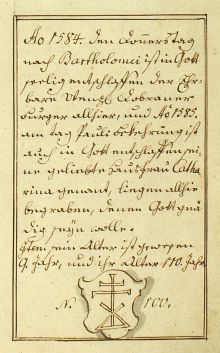 Ao 1584. den Donnerstag
nach Bartholomei ist in Gott
seelig entschlaffen der Ehr-
bare Wentzl Dobrauer
bürger allhier, und Ao 1585.
am tag Pauli bekehrung ist
auch in Gott entschlaffen, sei-
ne geliebte hausfrau Catha-
rina genant, liegen allhie
begraben, denen Gott gnä-
dig seyn wolle.
Item sein Alter ist gewesen
9. Jahr, und ihr Alter 110. Jahr.
No. 100.